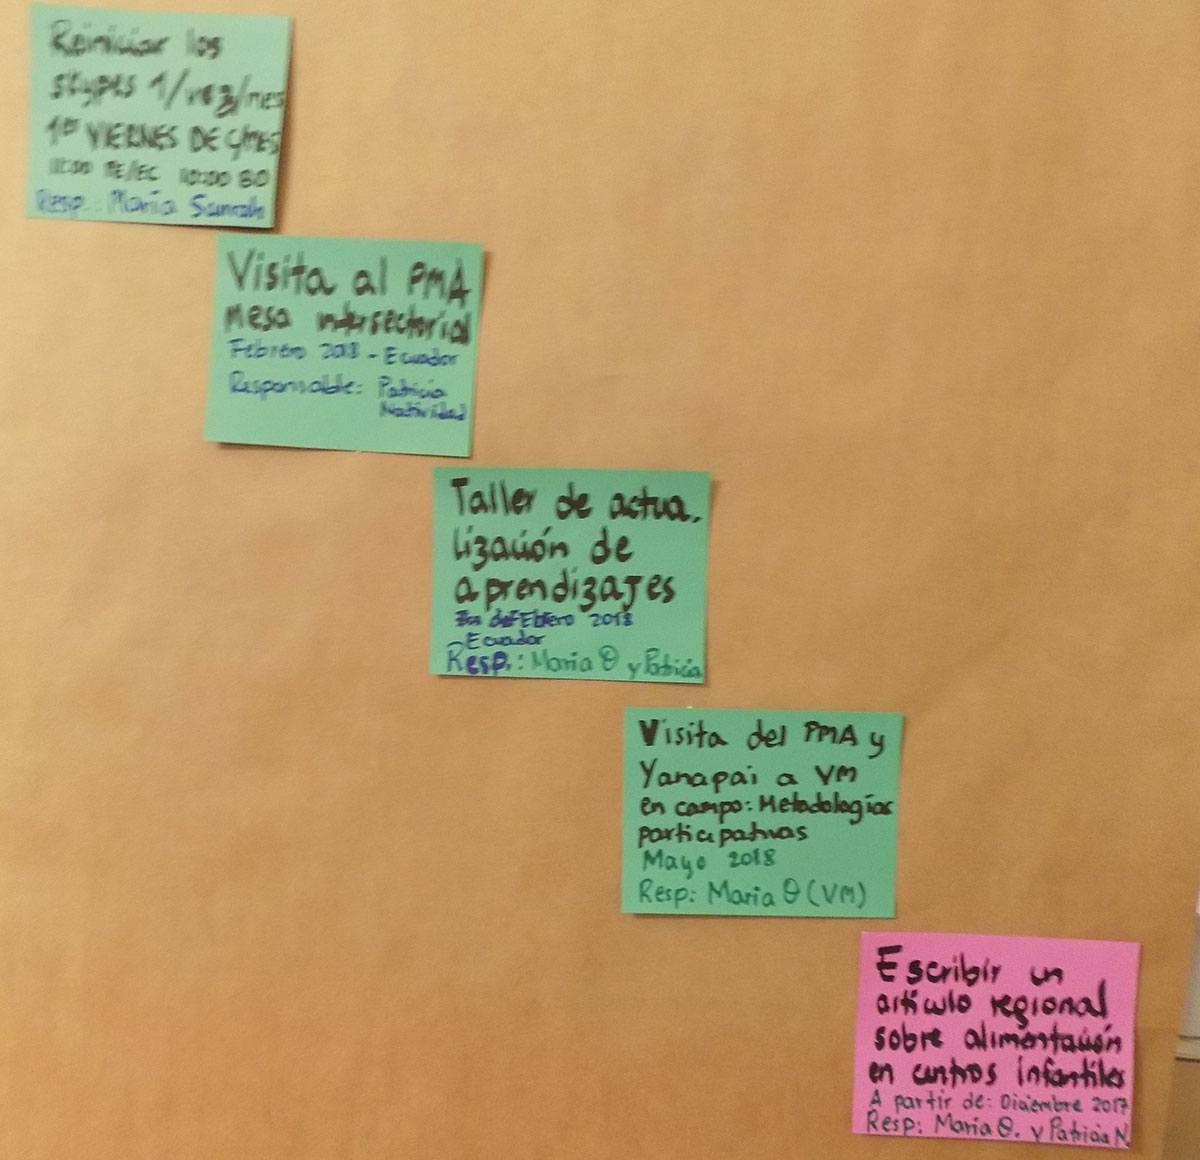 Reiniciar los
skypes 1/vez/mes
1er VIERNES DE C/MES
11:00 PE/EC 10:00 BO
Resp.: María
Visita al PMA
Mesa intersectorial
Febrero 2018 - Ecuador
Responsable: Patricia
Natividad
Taller de actua.
lización de
aprendizajes
de FEbrero 2018
Ecuador
Resp.: María θ y Patricia
Visita del PMA y
Yanapai a VM
en campo: Metodologías
participativas
Mayo 2018
Resp: Maria θ (VM)
Escribir un
artículo regional
sobre alimentación
en centros infantiles
A partir de: Diciembre 2017
Resp: María θ. y Patricia N.